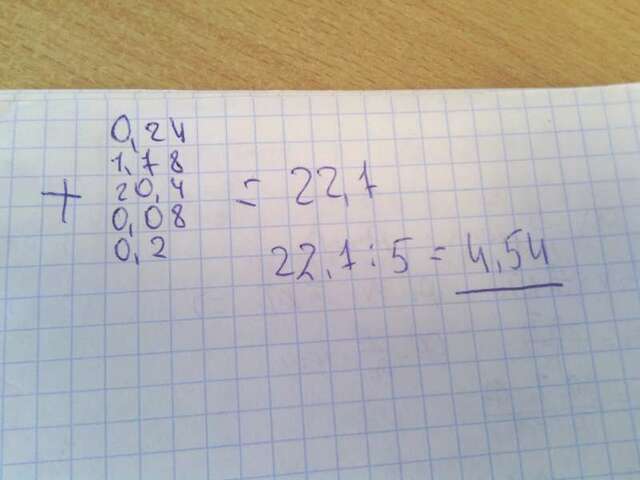 0,24
1,78
+ 20,4 = 22,7
0,08
0,2
22,7:5 = 4,54